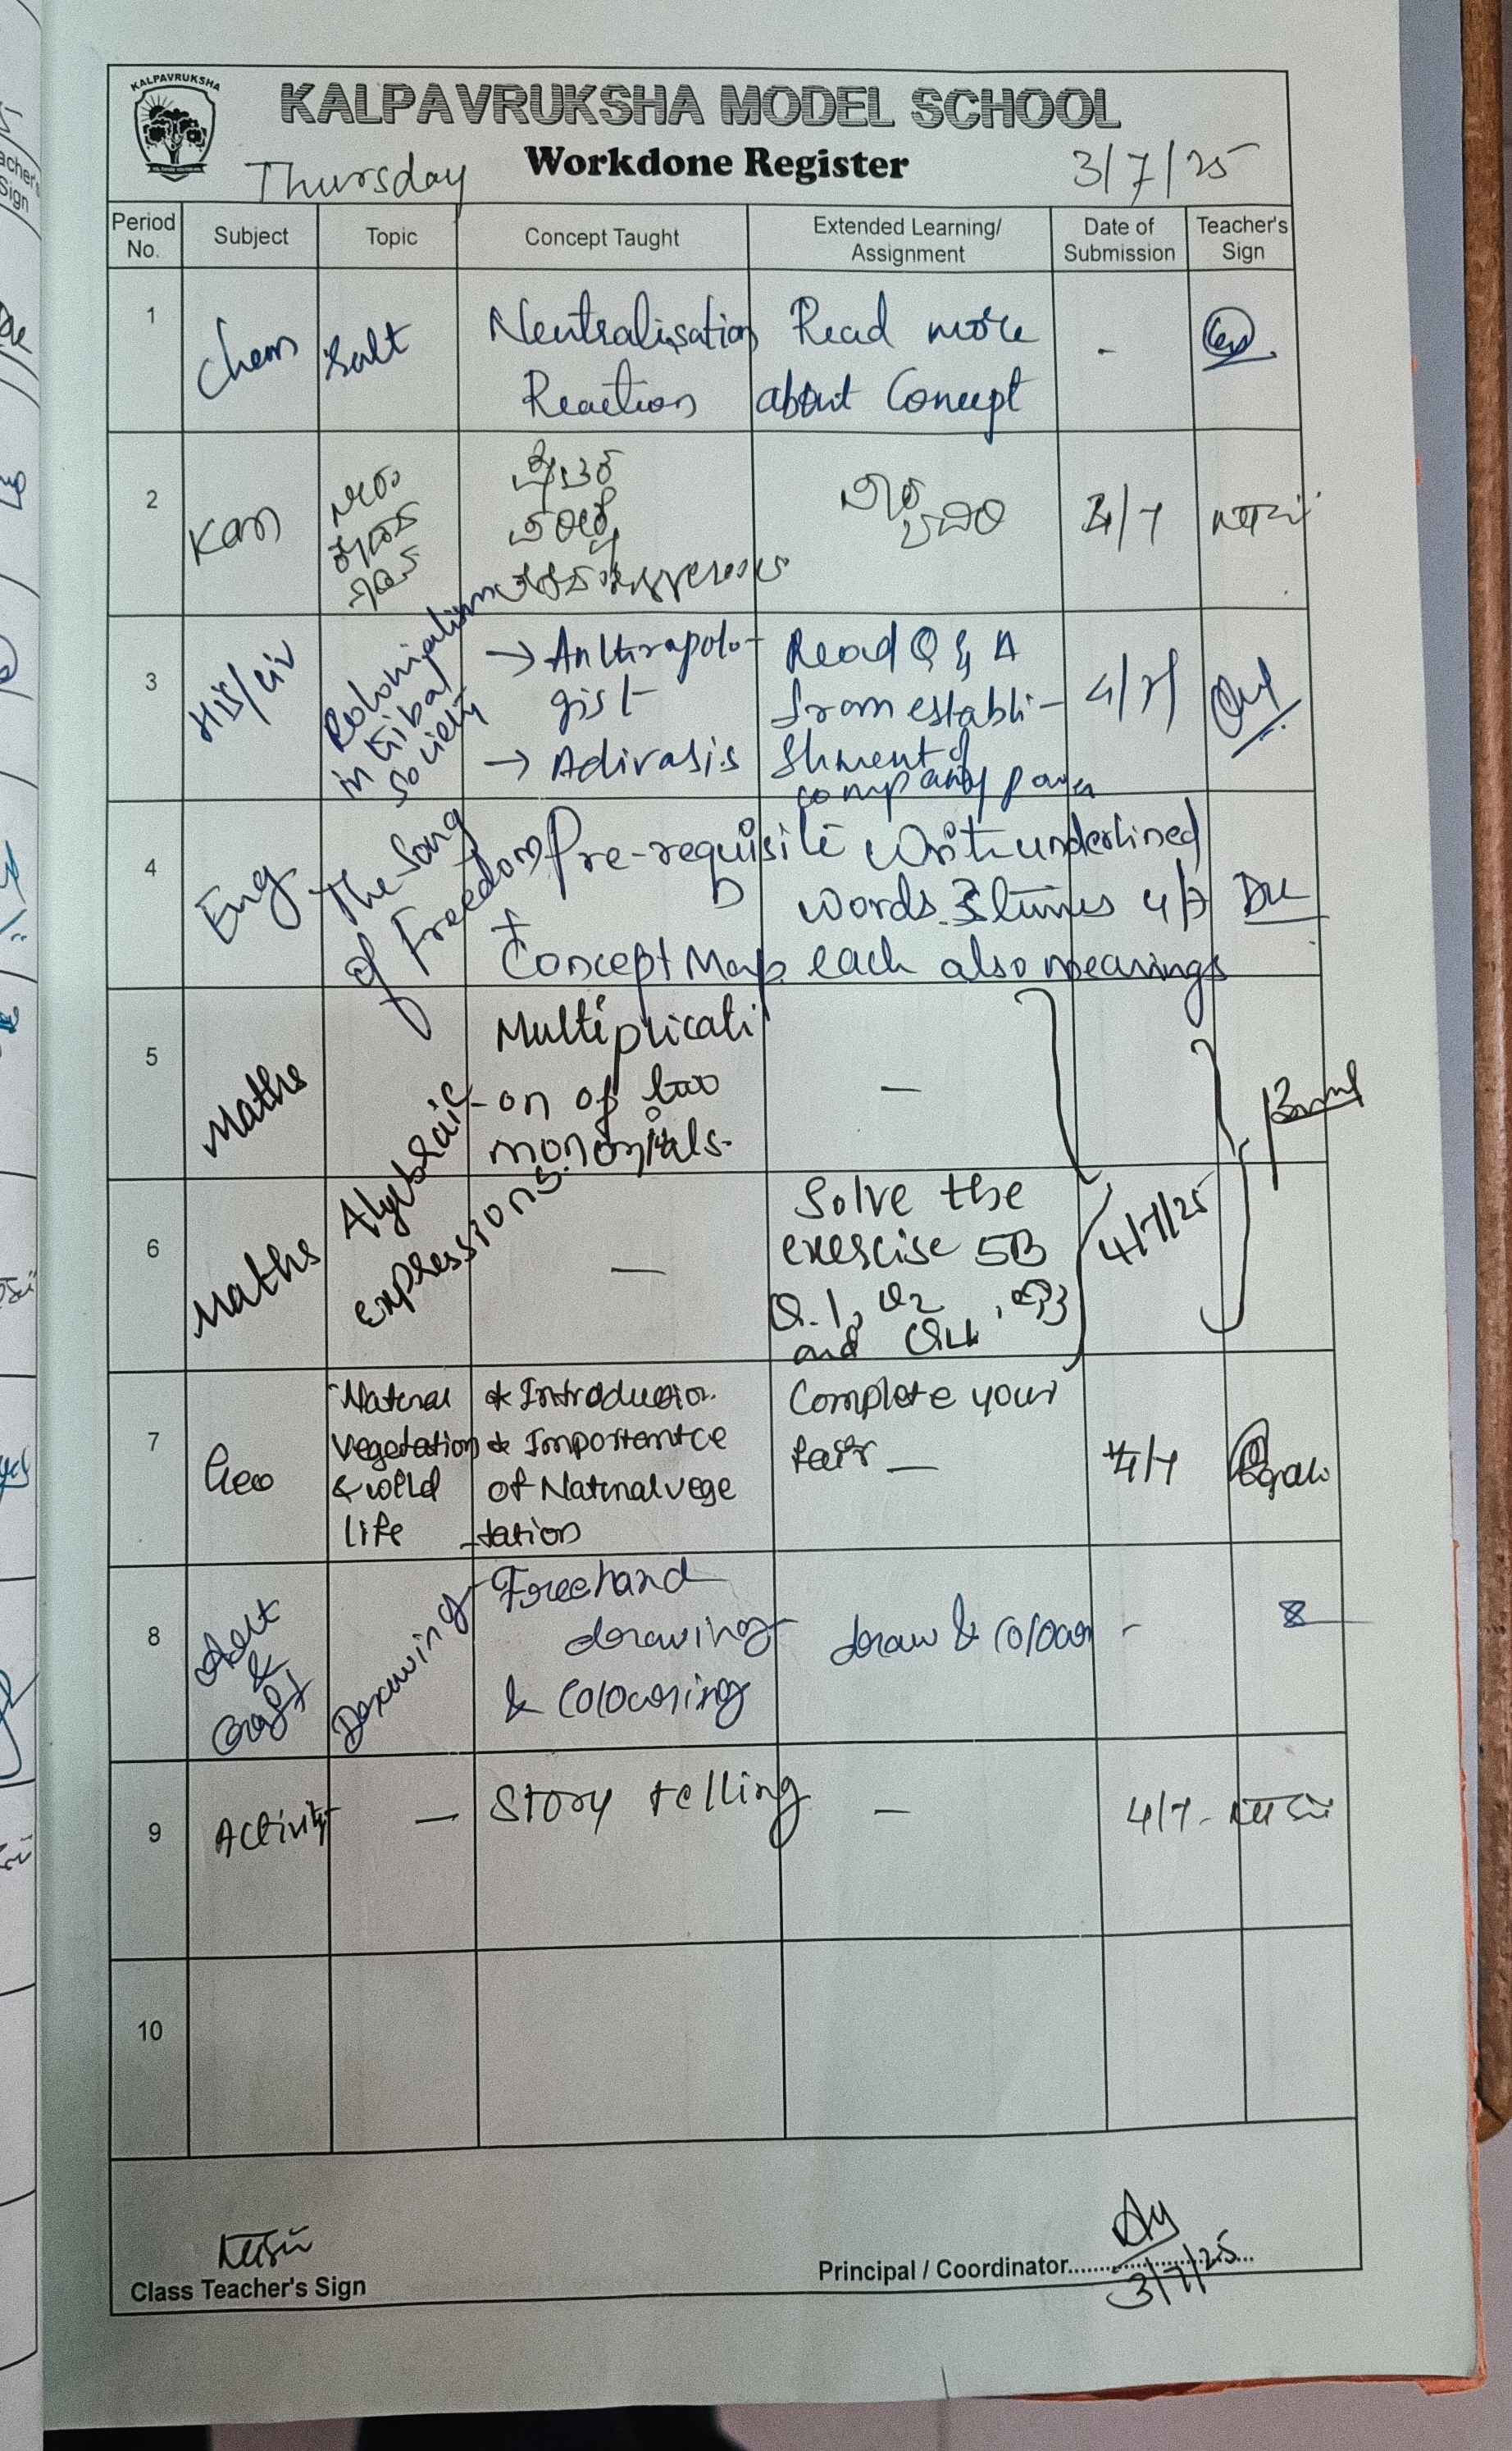 KALPAVRUKSHA
KALPAVRUKSHA MODEL SCHOOL
Workdone Register
Thursday
3/7/25
Period No.
Subject
Topic
Concept Taught
Extended Learning/
Assignment
Date of
Submission
Teacher's
Sign
1
Chem
Salt
Neutralisation
Reaction
Read more
about Concept
-
2
Kan
4/7
3
His/civ
Colonialism
in tribal
society
→ Anthrapolo-
gist
→ Adivasis
Read Q & A
from establi-
shment of
company power
4/7
4
Eng
The Song
of Freedom
Pre-requisite
+
Concept Map
Write underlined
words 3 times
each also meanings
4/7
5
Maths
Algebraic
expressions
Multiplicati
-on of two
monomials.
—
6
Maths
—
Solve the
exercise 5B
Q.1, Q2, Q3
and Q4
4/7/25
7
Geo
Natural
Vegetation
& wild
life
* Introduction
* Importantce
of Natural vege
-tation
Complete your
fair —
4/7
8
Art
&
Craft
Drawing
Freehand
drawing
& colouring
draw & colour
-
9
Activity
—
Story telling
—
4/7
10
Class Teacher's Sign
Principal / Coordinator
3/7/25